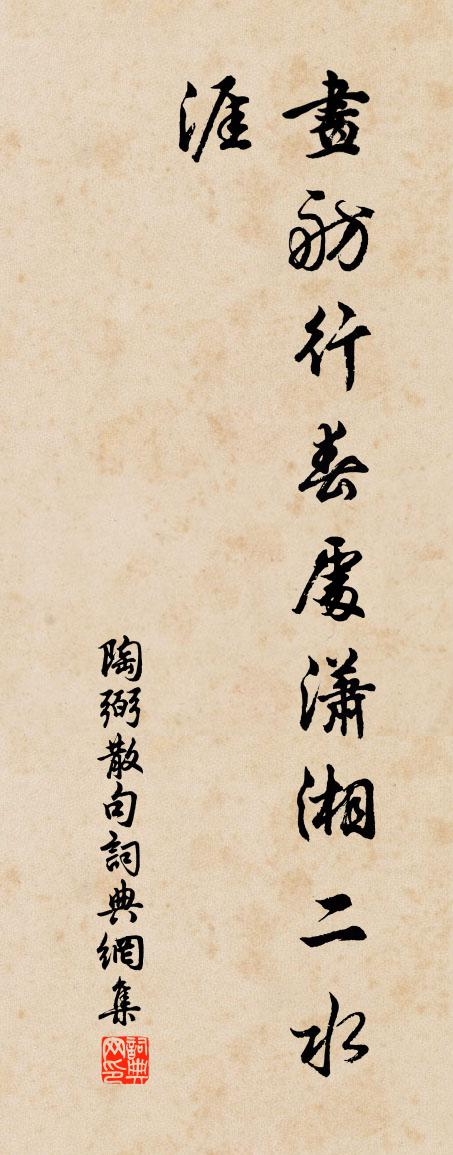 畫舫行春處瀟湘二水
涯
陶弼散句詞典網集
詞典网印